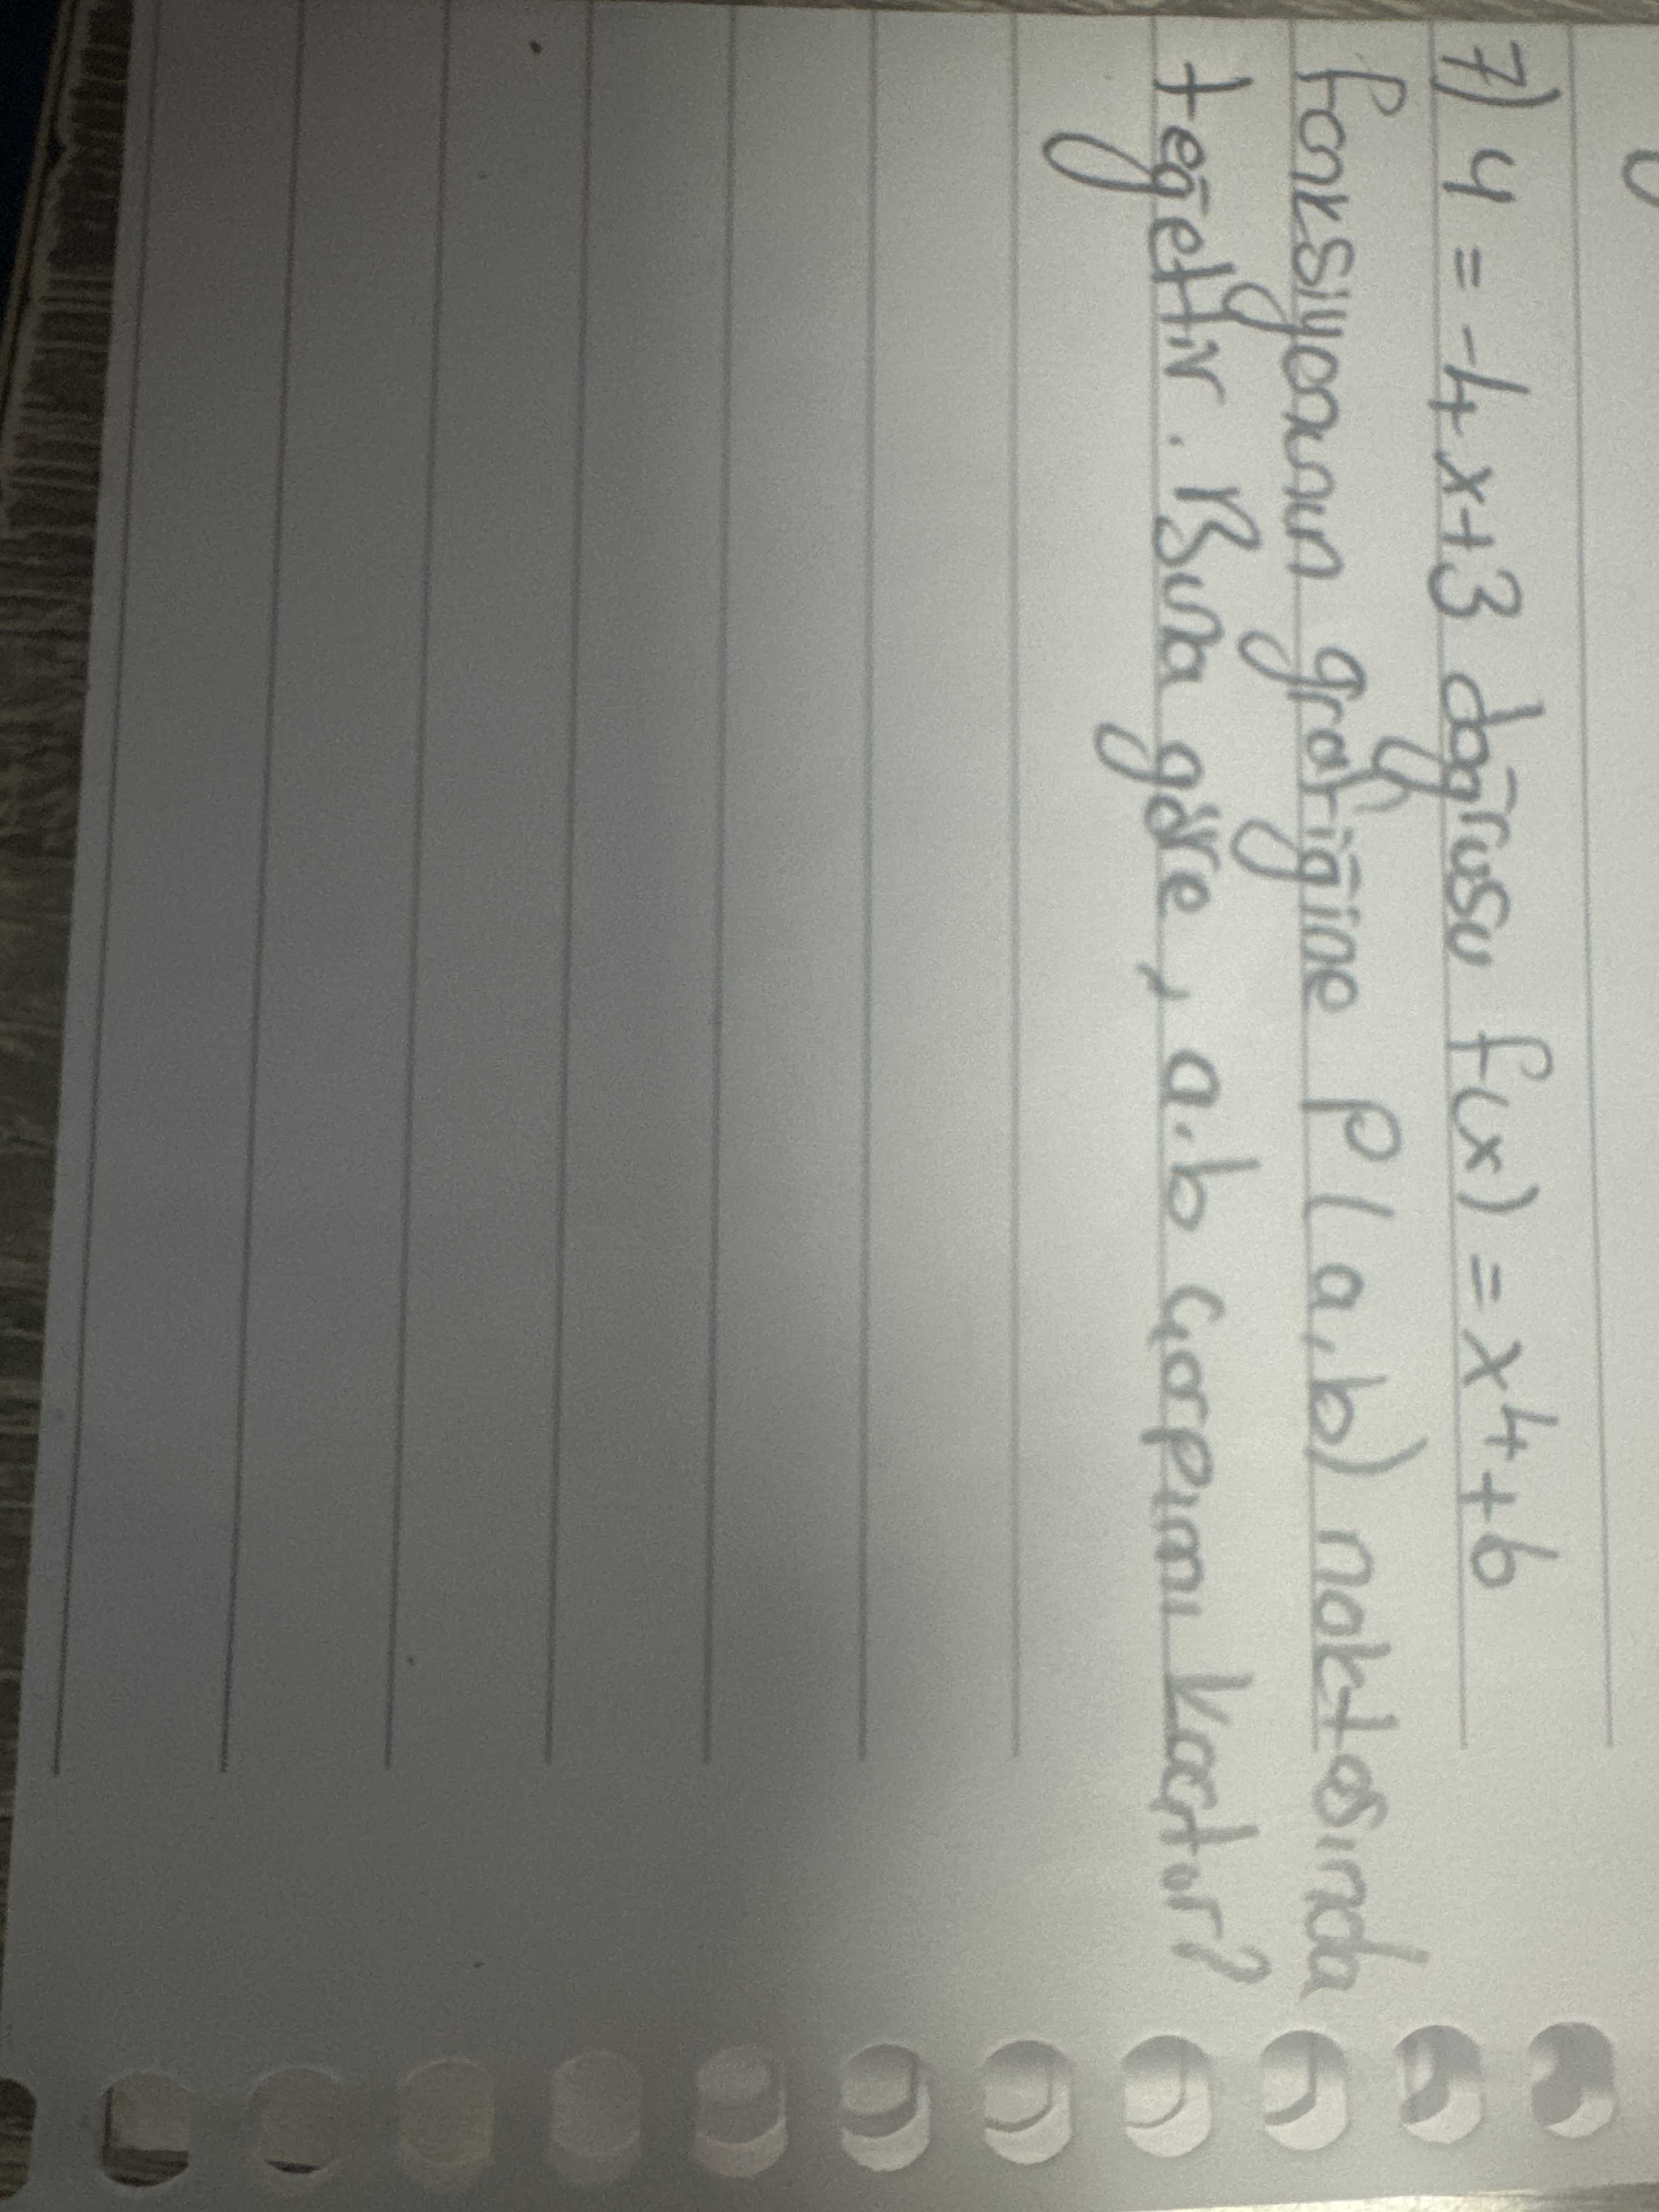 7) y = -4x+3 doğrusu f(x) = x⁴+6
fonksiyonun grafiğine P(a,b) noktasında
teğettir. Buna göre, a.b çarpımı kaçtır?